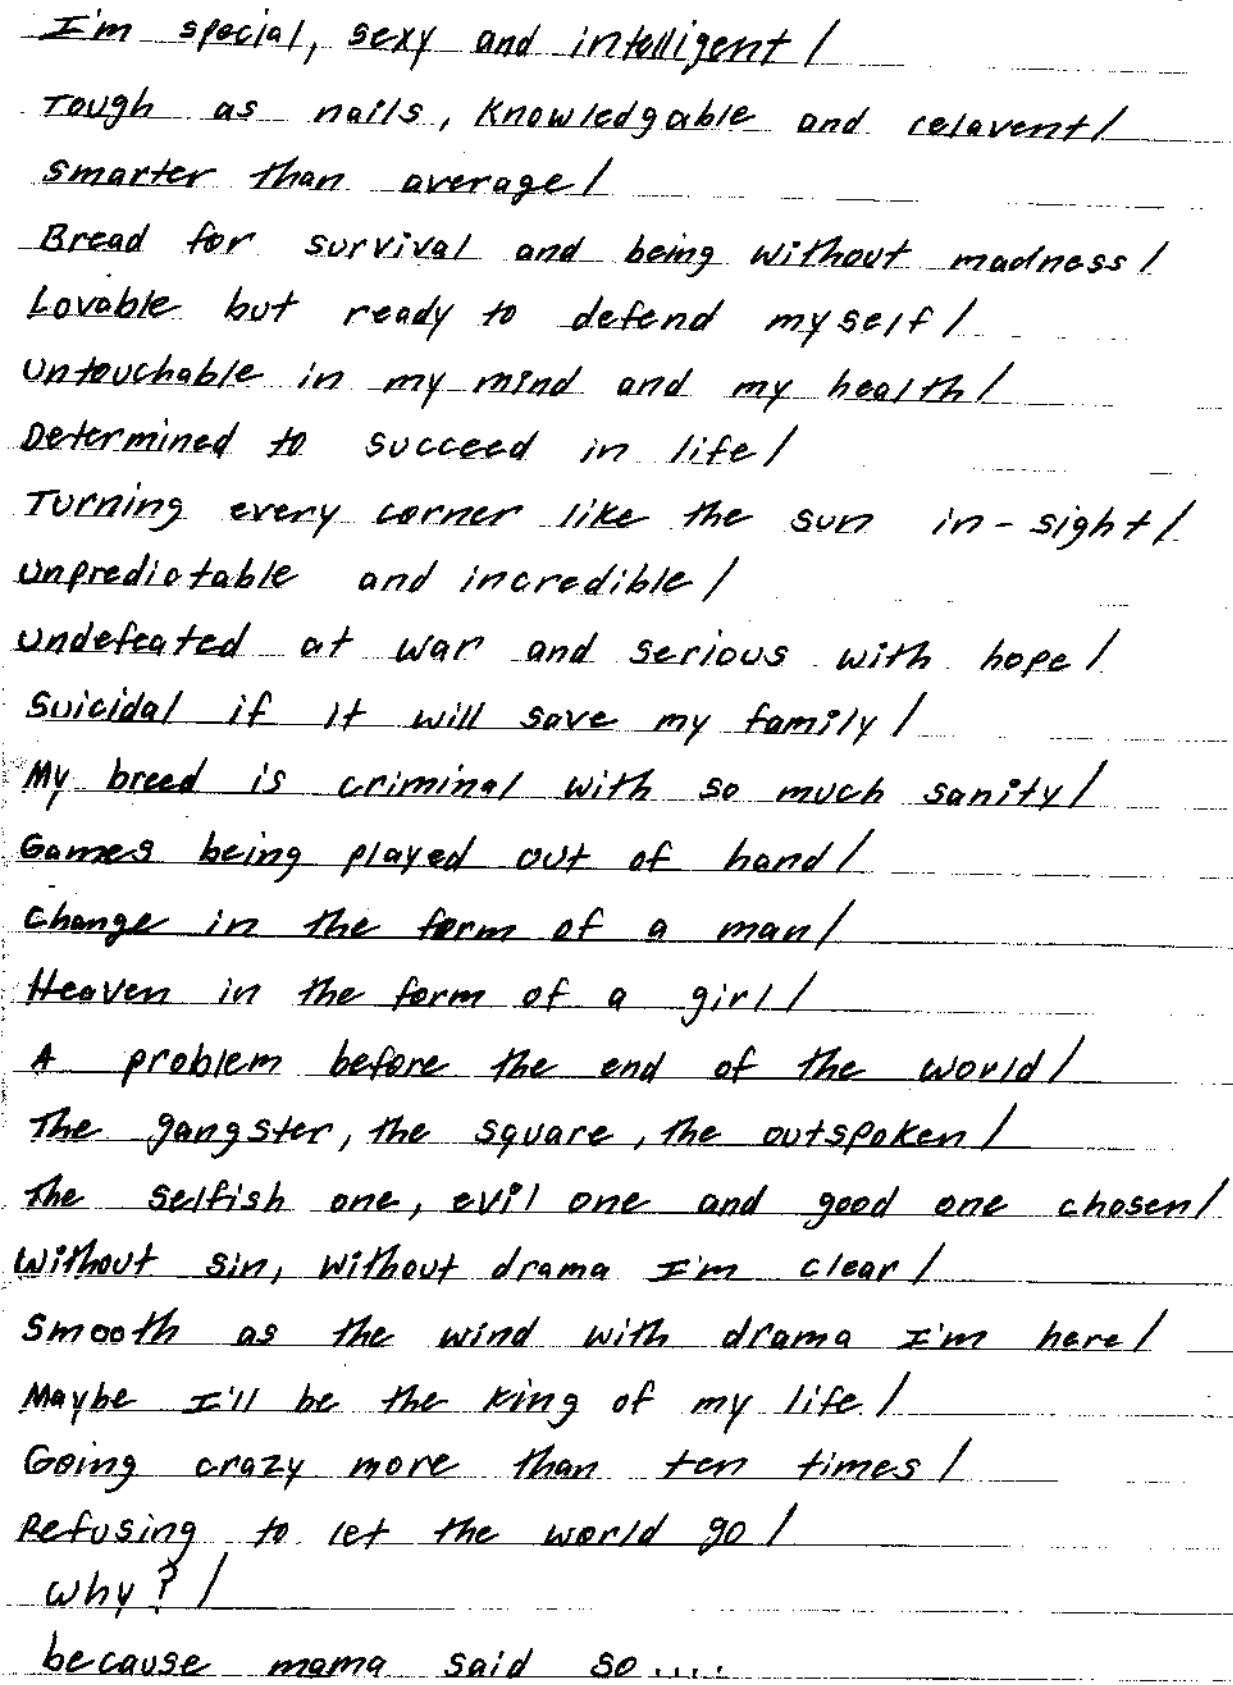 I'm special, sexy and intelligent/
Tough as nails, Knowledgable and relavent/
Smarter than average/
Bread for survival and being without madness/
Lovable but ready to defend myself/
Untouchable in my mind and my health/
Determined to succeed in life/
Turning every corner like the sun in-sight/
Unpredictable and incredible/
Undefeated at war and serious with hope/
Suicidal if it will save my family/
My breed is criminal with so much sanity/
Games being played out of hand/
Change in the form of a man/
Heaven in the form of a girl/
A problem before the end of the world/
The gangster, the square, the outspoken/
The selfish one, evil one and good one chosen/
Without sin, without drama I'm clear/
Smooth as the wind with drama I'm here/
Maybe I'll be the king of my life/
Going crazy more than ten times/
Refusing to let the world go/
Why?/
because mama said so....